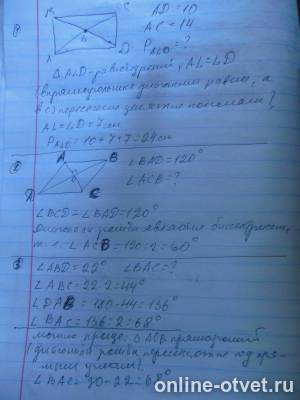 B C AD = 10
① AC = 14
A D P = ?
△ALD - равнобедренный, AL = LD
(в прямоугольнике диагонали равны, а
в т. пересечения делятся пополам)
AL = LD = 7 см
P = 10 + 7 + 7 = 24 см
② A B ∠BAD = 120°
D C ∠ACB = ?
∠BCD = ∠BAD = 120°
Диагонали ромба являются биссектрисами,
т. е. ∠ACB = 120 : 2 = 60°
③ ∠ABD = 22° ∠BAC = ?
∠ABC = 22·2 = 44°
∠DAB = 180 - 44 = 136°
∠BAC = 136 : 2 = 68°
можно проще: прямоугольный
(диагонали ромба пересекаются под пря-
мым углом)
∠BAC = 90 - 22 = 68°
online-otvet.ru